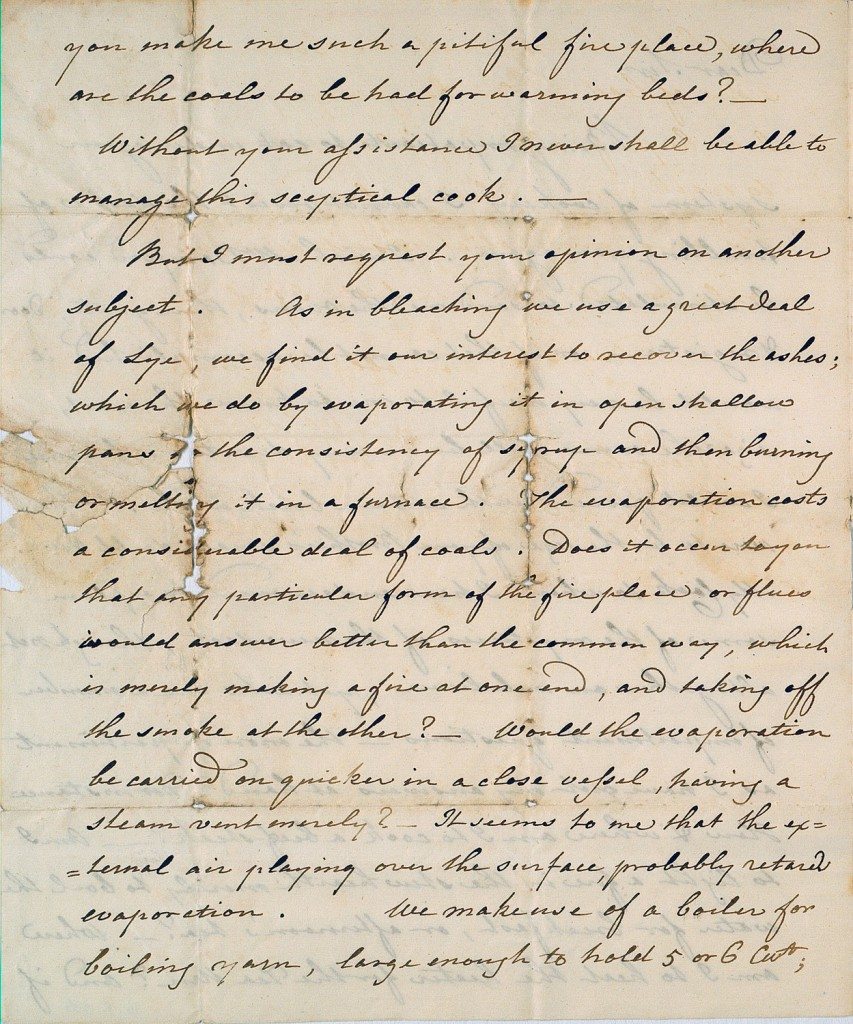 you make me such a pitiful fire place, where
are the coals to be had for warming beds? —
Without your assistance I never shall be able to
manage this sceptical cook. —
But I must request your opinion on another
subject. As in bleaching we use a great deal
of Lye, we find it our interest to recover the ashes;
which we do by evaporating it in open shallow
pans to the consistency of syrup and then burning
or melting it in a furnace. The evaporation costs
a considerable deal of coals. Does it occur to you
that any particular form of the fire place or flues
would answer better than the common way, which
is merely making a fire at one end, and taking off
the smoke at the other? — Would the evaporation
be carried on quicker in a close vessel, having a
steam vent merely? — It seems to me that the ex=
=ternal air playing over the surface, probably retard
evaporation. We make use of a boiler for
boiling yarn, large enough to hold 5 or 6 Cwt;